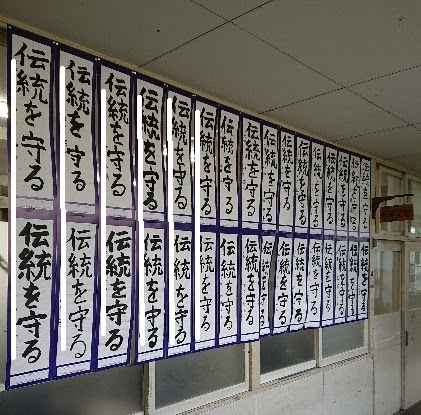 伝統を守る
伝統を守る
伝統を守る
伝統を守る
伝統を守る
伝統を守る
伝統を守る
伝統を守る
伝統を守る
伝統を守る
伝統を守る
伝統を守る
伝統を守る
伝統を守る
伝統を守る
伝統を守る
伝統を守る
伝統を守る
伝統を守る
伝統を守る
伝統を守る
伝統を守る
伝統を守る
伝統を守る
伝統を守る
伝統を守る
伝統を守る
伝統を守る
伝統を守る
伝統を守る
伝統を守る
伝統を守る